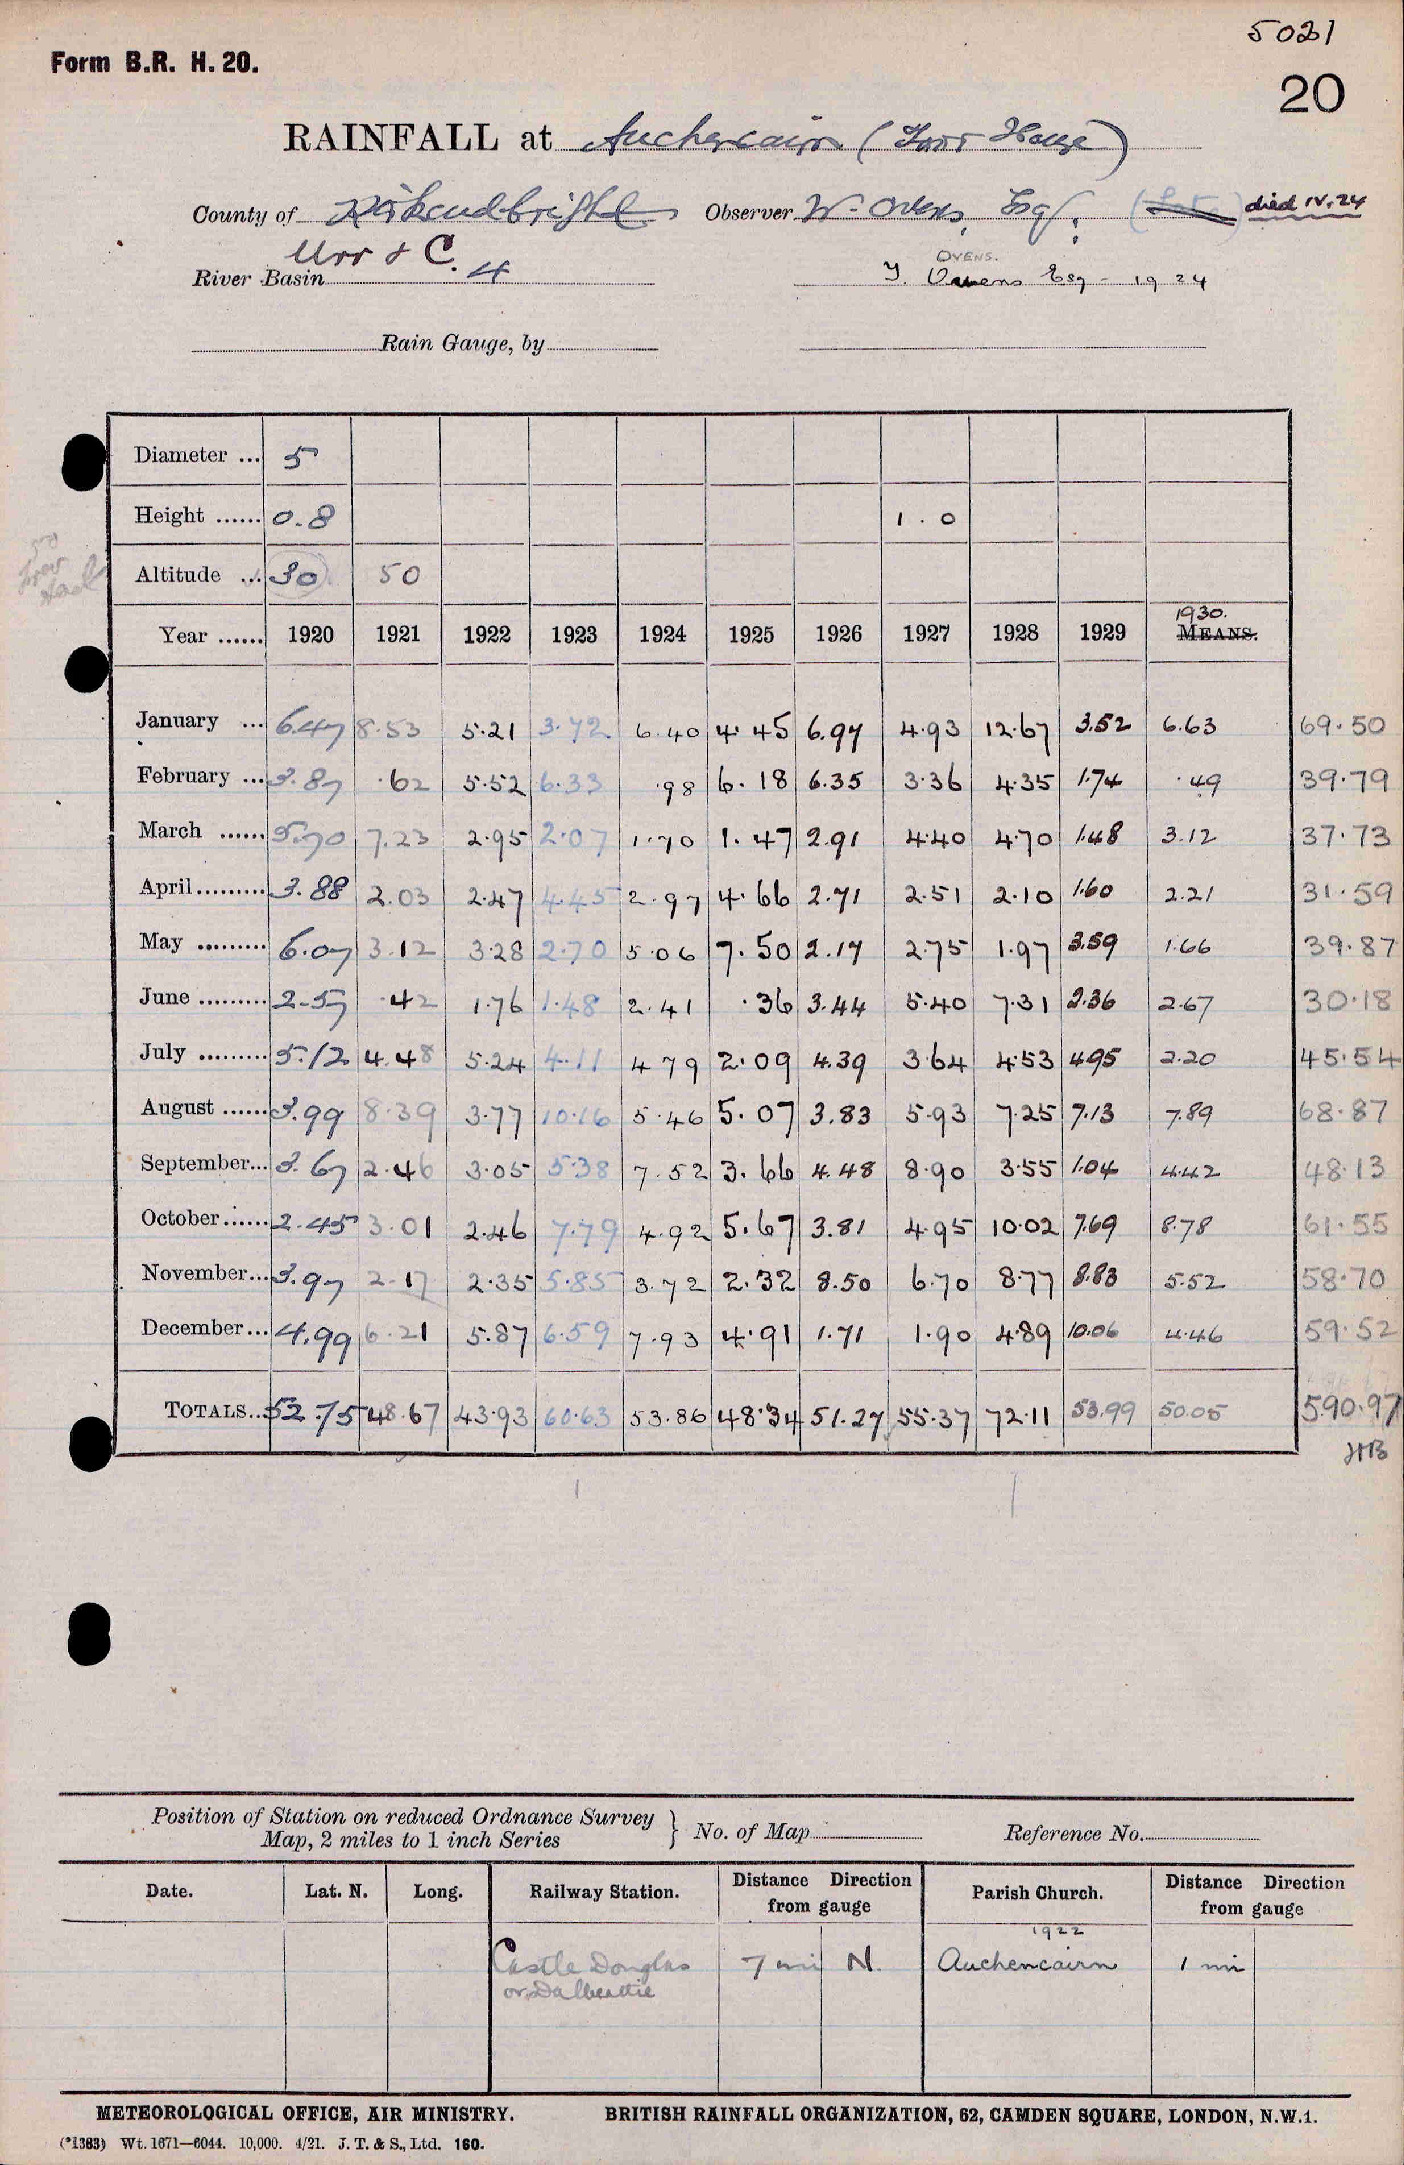 5021
Form B.R. H. 20.
20
RAINFALL at Auchencairn (Torr House)
County of Kirkcudbright Observer W. Ovens, Esq. died IV.24
Urr & C.
OVENS.
River Basin 4 T. Owens Esq - 1924
Rain Gauge, by
Diameter ... 5
Height ...... 0.8 1.0
Altitude ... 30 50
1930.
Year ...... 1920 1921 1922 1923 1924 1925 1926 1927 1928 1929 MEANS.
January ... 6.47 8.53 5.21 3.72 6.40 4.45 6.97 4.93 12.67 3.52 6.63 69.50
February ... 3.87 .62 5.52 6.33 .98 6.18 6.35 3.36 4.35 1.74 .49 39.79
March ...... 5.70 7.23 2.95 2.07 1.70 1.47 2.91 4.40 4.70 1.48 3.12 37.73
April ......... 3.88 2.03 2.47 4.45 2.97 4.66 2.71 2.51 2.10 1.60 2.21 31.59
May ......... 6.07 3.12 3.28 2.70 5.06 7.50 2.17 2.75 1.97 3.59 1.66 39.87
June ......... 2.57 .42 1.76 1.48 2.41 .36 3.44 5.40 7.31 2.36 2.67 30.18
July ......... 5.12 4.48 5.24 4.11 4.79 2.09 4.39 3.64 4.53 4.95 2.20 45.54
August ...... 3.99 8.39 3.77 10.16 5.46 5.07 3.83 5.93 7.25 7.13 7.89 68.87
September... 3.67 2.46 3.05 5.38 7.52 3.66 4.48 8.90 3.55 1.04 4.42 48.13
October...... 2.45 3.01 2.46 7.79 4.92 5.67 3.81 4.95 10.02 7.69 8.78 61.55
November... 3.97 2.17 2.35 5.85 3.72 2.32 8.50 6.70 8.77 8.83 5.52 58.70
December... 4.99 6.21 5.87 6.59 7.93 4.91 1.71 1.90 4.89 10.06 4.46 59.52
TOTALS... 52.75 48.67 43.93 60.63 53.86 48.34 51.27 55.37 72.11 53.99 50.05 590.97
HB
Position of Station on reduced Ordnance Survey
Map, 2 miles to 1 inch Series } No. of Map Reference No.
Date. Lat. N. Long. Railway Station. Distance Direction from gauge Parish Church. Distance Direction from gauge
1922
Castle Douglas 7 mi N. Auchencairn 1 mi
or Dalbeattie
METEOROLOGICAL OFFICE, AIR MINISTRY. BRITISH RAINFALL ORGANIZATION, 62, CAMDEN SQUARE, LONDON, N.W.1.
(*1383) Wt. 1671—6044. 10,000. 4/21. J. T. & S., Ltd. 160.